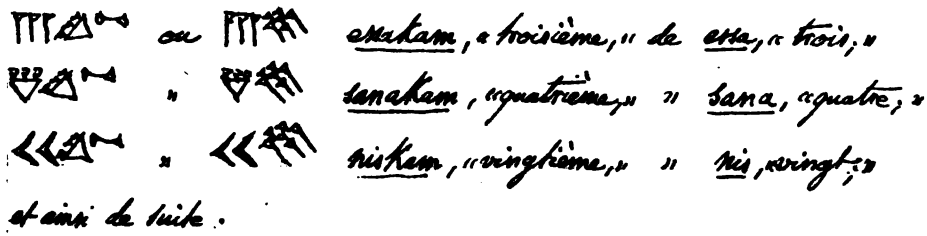 ou essakam, « troisième, » de essa, « trois; »
" sanakam, « quatrième, » " sana, « quatre; »
" niskam, « vingtième, » " nis, « vingt; »
et ainsi de suite.